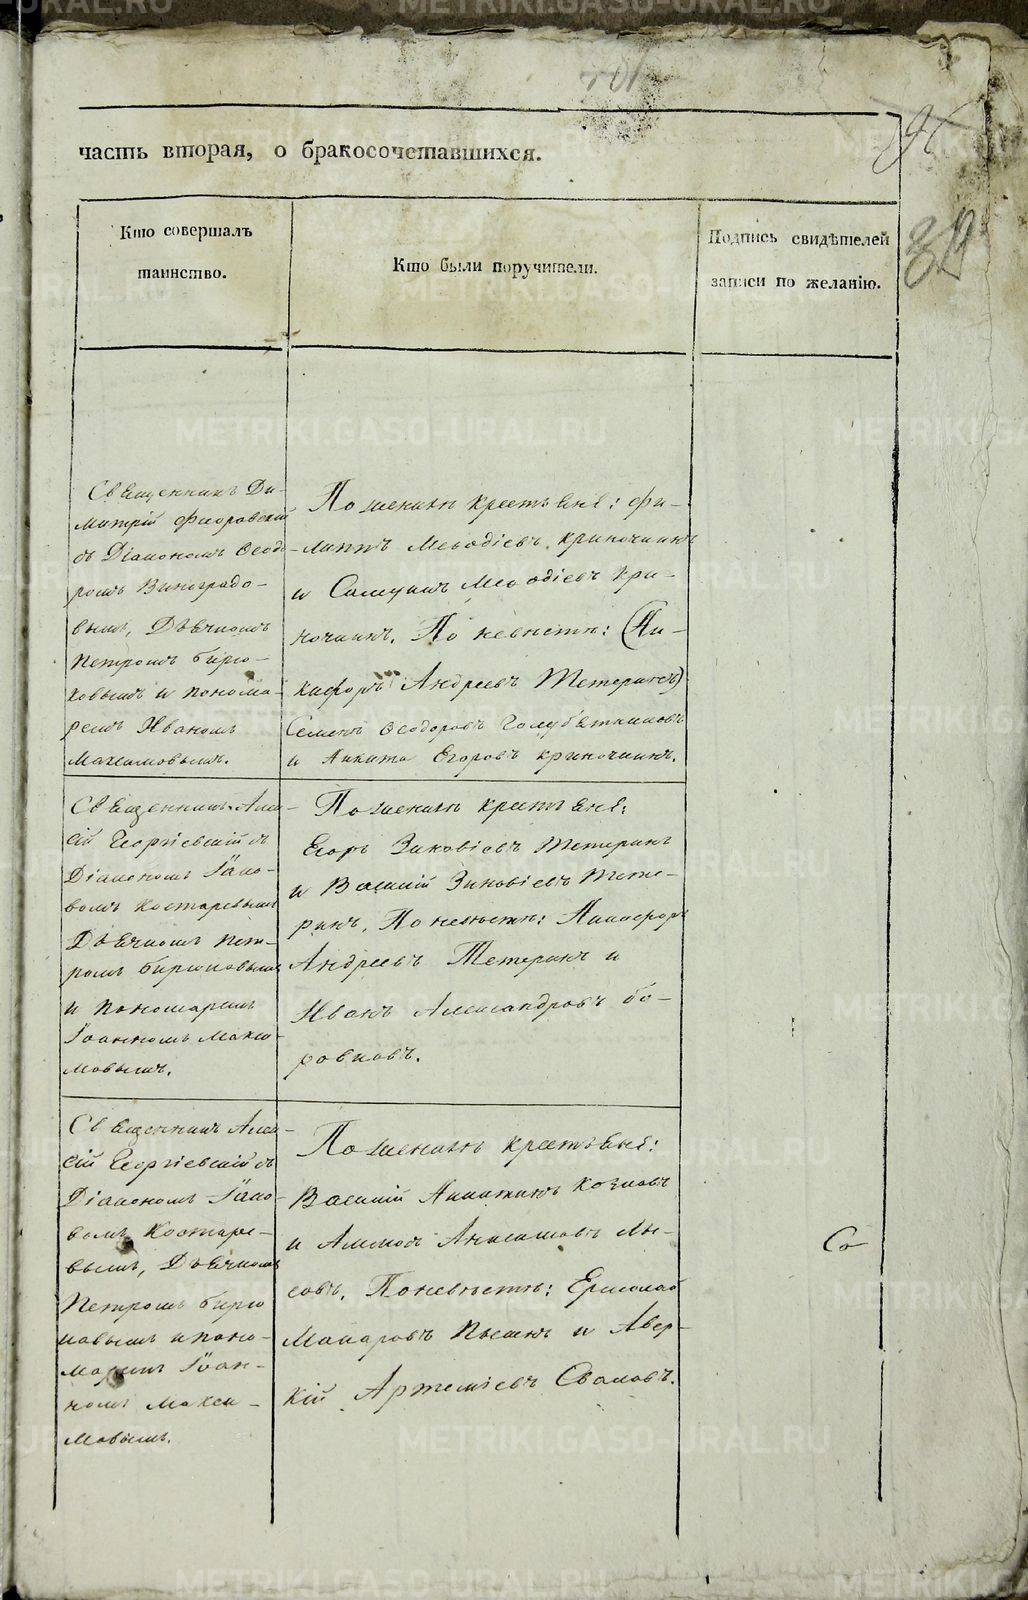 часть вторая, о бракосочетавшихся.
Кто совершалъ
таинство.
Кто были поручители.
Подпись свидѣтелей
записи по желанію.
Священникъ Ди-
митрій Флоровскій
съ Діакономъ Ѳеодо-
ромъ Виноградо-
вымъ, Дьячкомъ
Петромъ Бирю-
ковымъ и понома-
ремъ Иваномъ
Максимовымъ.
По женихѣ крестьяне: Фи-
липпъ Меѳодіевъ Криночкинъ
и Меѳодіевъ Кри-
ночкинъ. По невѣстѣ: (Ни-
кифоръ Андреевъ Тетеринъ)
Семенъ Ѳеодоровъ Голубятниковъ
и Никита Егоровъ Криночкинъ.
Священникъ Алек-
сій Георгіевскій съ
Діакономъ Іако-
вомъ Костаревымъ
Дьячкомъ Пет-
ромъ Бирюковымъ
и пономаремъ
Іоанномъ Макси-
мовымъ.
По женихѣ крестьяне:
Егоръ Зиновіевъ Тетеринъ
и Василій Зиновіевъ Тете-
ринъ. По невѣстѣ: Никифоръ
Андреевъ Тетеринъ и
Иванъ Александровъ Бо-
ровковъ.
Священникъ Алек-
сій Георгіевскій съ
Діакономъ Іако-
вомъ Костаре-
вымъ, Дьячкомъ
Петромъ Бирю
ковымъ и поно-
маремъ Іоан-
номъ Макси-
мовымъ.
По женихѣ крестьяне:
Василій Никитинъ Козловъ
и Анисимовъ Лы-
совъ. По невѣстѣ: Ермолай
Макаровъ и Авер-
кій Артеміевъ Сваловъ.
Со